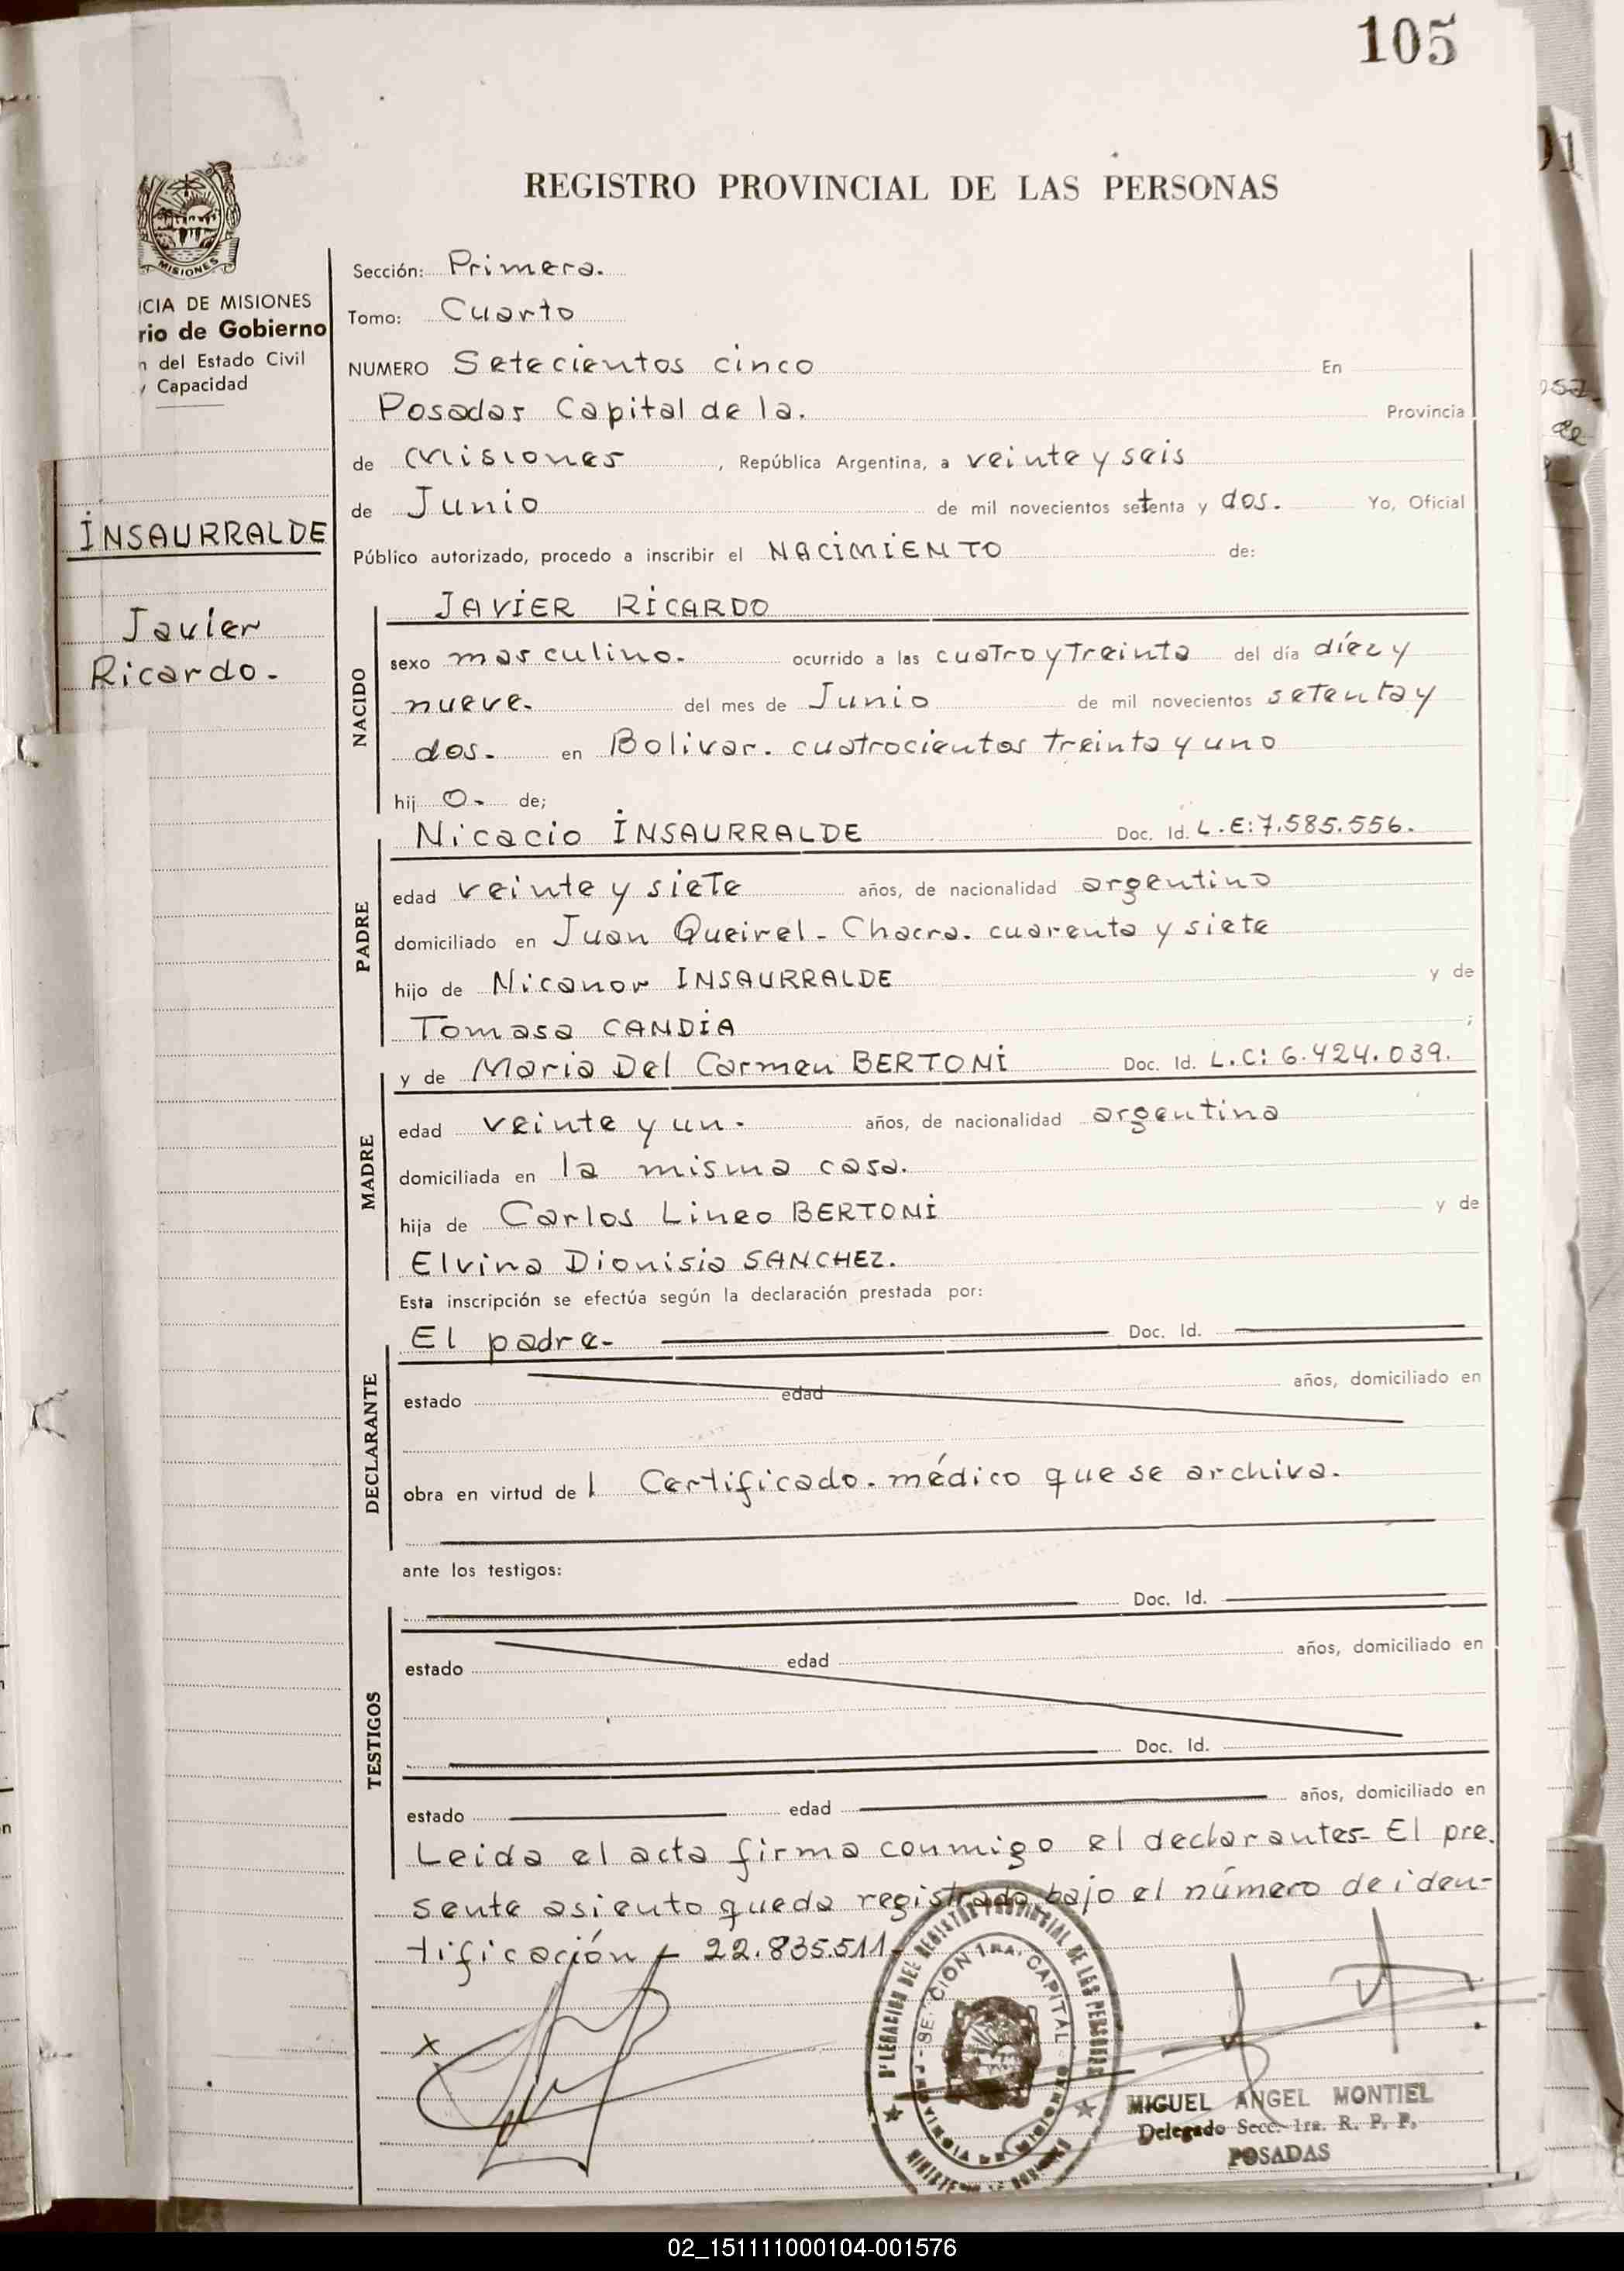 105
REGISTRO PROVINCIAL DE LAS PERSONAS
MISIONES
ICIA DE MISIONES
rio de Gobierno
n del Estado Civil
y Capacidad
INSAURRALDE
Javier
Ricardo.
Sección: Primera.
Tomo: Cuarto
NUMERO Setecientos cinco En
Posadas Capital de la. Provincia
de Misiones , República Argentina, a veinte y seis
de Junio de mil novecientos setenta y dos. Yo, Oficial
Público autorizado, procedo a inscribir el NACIMIENTO de:
NACIDO
JAVIER RICARDO
sexo masculino. ocurrido a las cuatro y treinta del día diez y
nueve. del mes de Junio de mil novecientos setenta y
dos. en Bolivar. cuatrocientos treinta y uno
hij o. de;
PADRE
Nicacio INSAURRALDE Doc. Id. L.E:7.585.556.
edad veinte y siete años, de nacionalidad argentino
domiciliado en Juan Queirel - Chacra. cuarenta y siete
hijo de Nicanor INSAURRALDE y de
Tomasa CANDIA ;
MADRE
y de Maria Del Carmen BERTONI Doc. Id. L.C: 6.424.039.
edad veinte y un. años, de nacionalidad argentina
domiciliada en la misma casa.
hija de Carlos Lineo BERTONI y de
Elvina Dionisia SANCHEZ.
Esta inscripción se efectúa según la declaración prestada por:
DECLARANTE
El padre- Doc. Id.
estado edad años, domiciliado en
obra en virtud de l Certificado. médico que se archiva.
ante los testigos:
TESTIGOS
Doc. Id.
estado edad años, domiciliado en
Doc. Id.
estado edad años, domiciliado en
Leida el acta firma conmigo el declarantes- El pre.
sente asiento queda registrado bajo el número de iden-
tificación - 22.835.511
x
DELEGACION DEL REGISTRO PROVINCIAL DE LAS PERSONAS
SECCION 1RA. CAPITAL
PROVINCIA DE MISIONES
MIGUEL ANGEL MONTIEL
Delegado Secc. 1ra. R. P. P.
POSADAS
02_151111000104-001576